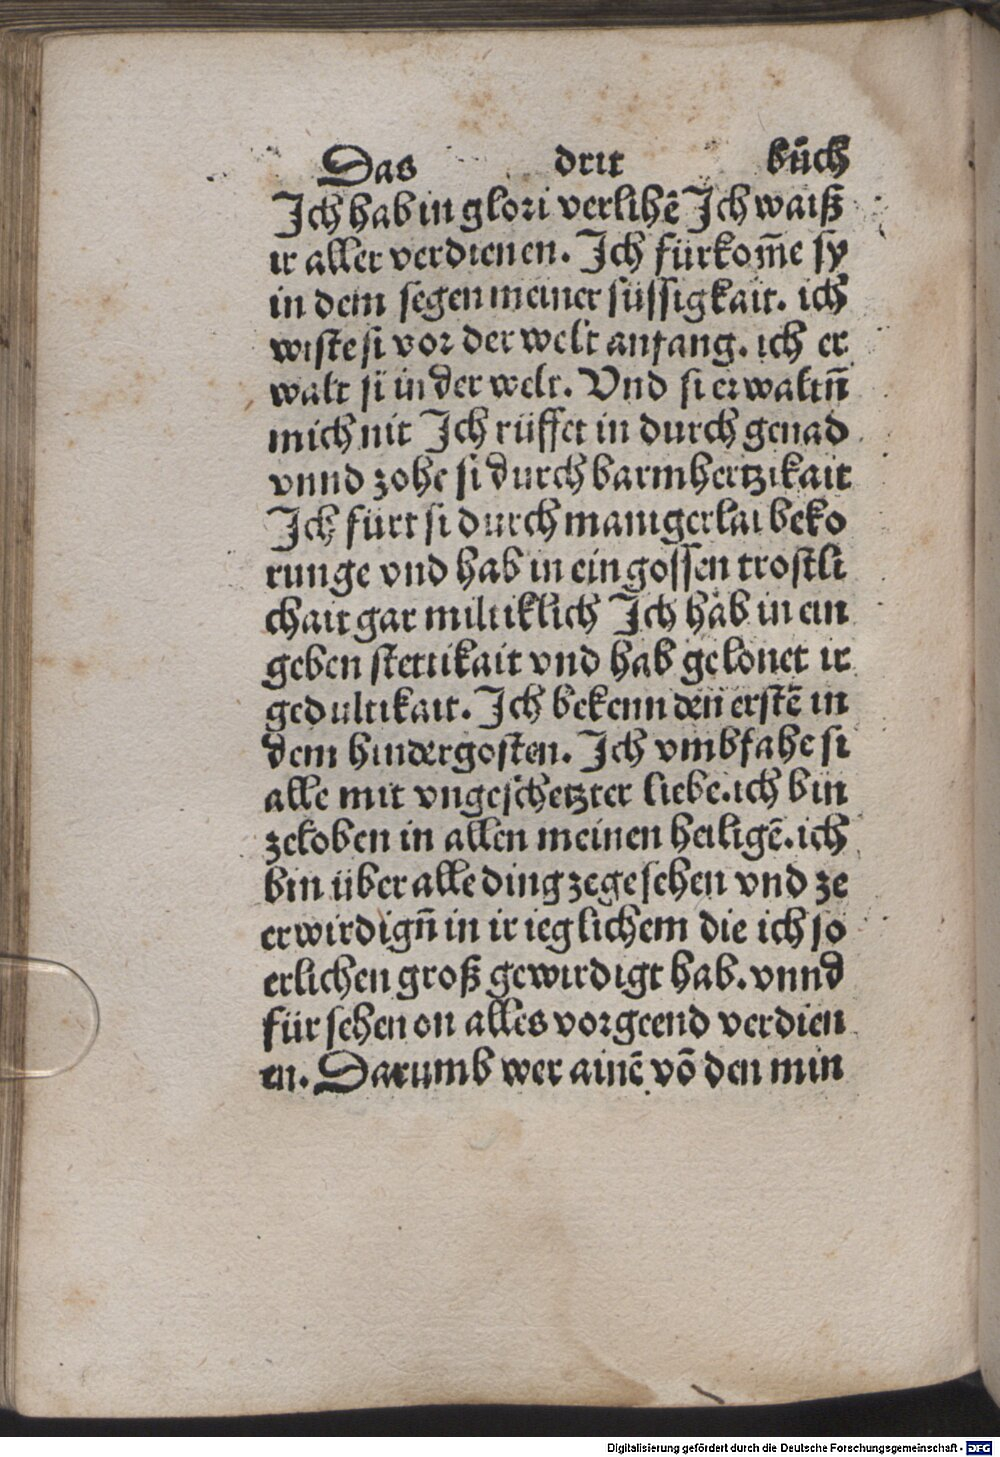 Das drit bůch
Ich hab in glori verlihē Ich waiß
ir aller verdienen. Ich fürkom̄e sy
in dem segen meiner süssigkait. ich
wiste si vor der welt anfang. ich er
walt si in der welt. Vnd si erwaltn̄
mich nit Ich rüffet in durch genad
vnnd zohe si durch barmhertzikait
Ich fürt si durch manigerlai beko
runge vnd hab in ein gossen trostli
chait gar miltiklich Ich hab in ein
geben stettikait vnd hab gelonet ir
gedultikait. Ich bekenn den erstē in
dem hindergosten. Ich vmbfahe si
alle mit vngeschetzter liebe. ich bin
zeloben in allen meinen heiligē. ich
bin über alle ding zegesehen vnd ze
erwirdign̄ in ir ieglichem die ich so
erlichen groß gewirdigt hab. vnnd
für sehen on alles vorgeend verdien
en. Darumb wer ainē vō den min
Digitalisierung gefördert durch die Deutsche Forschungsgemeinschaft - DFG